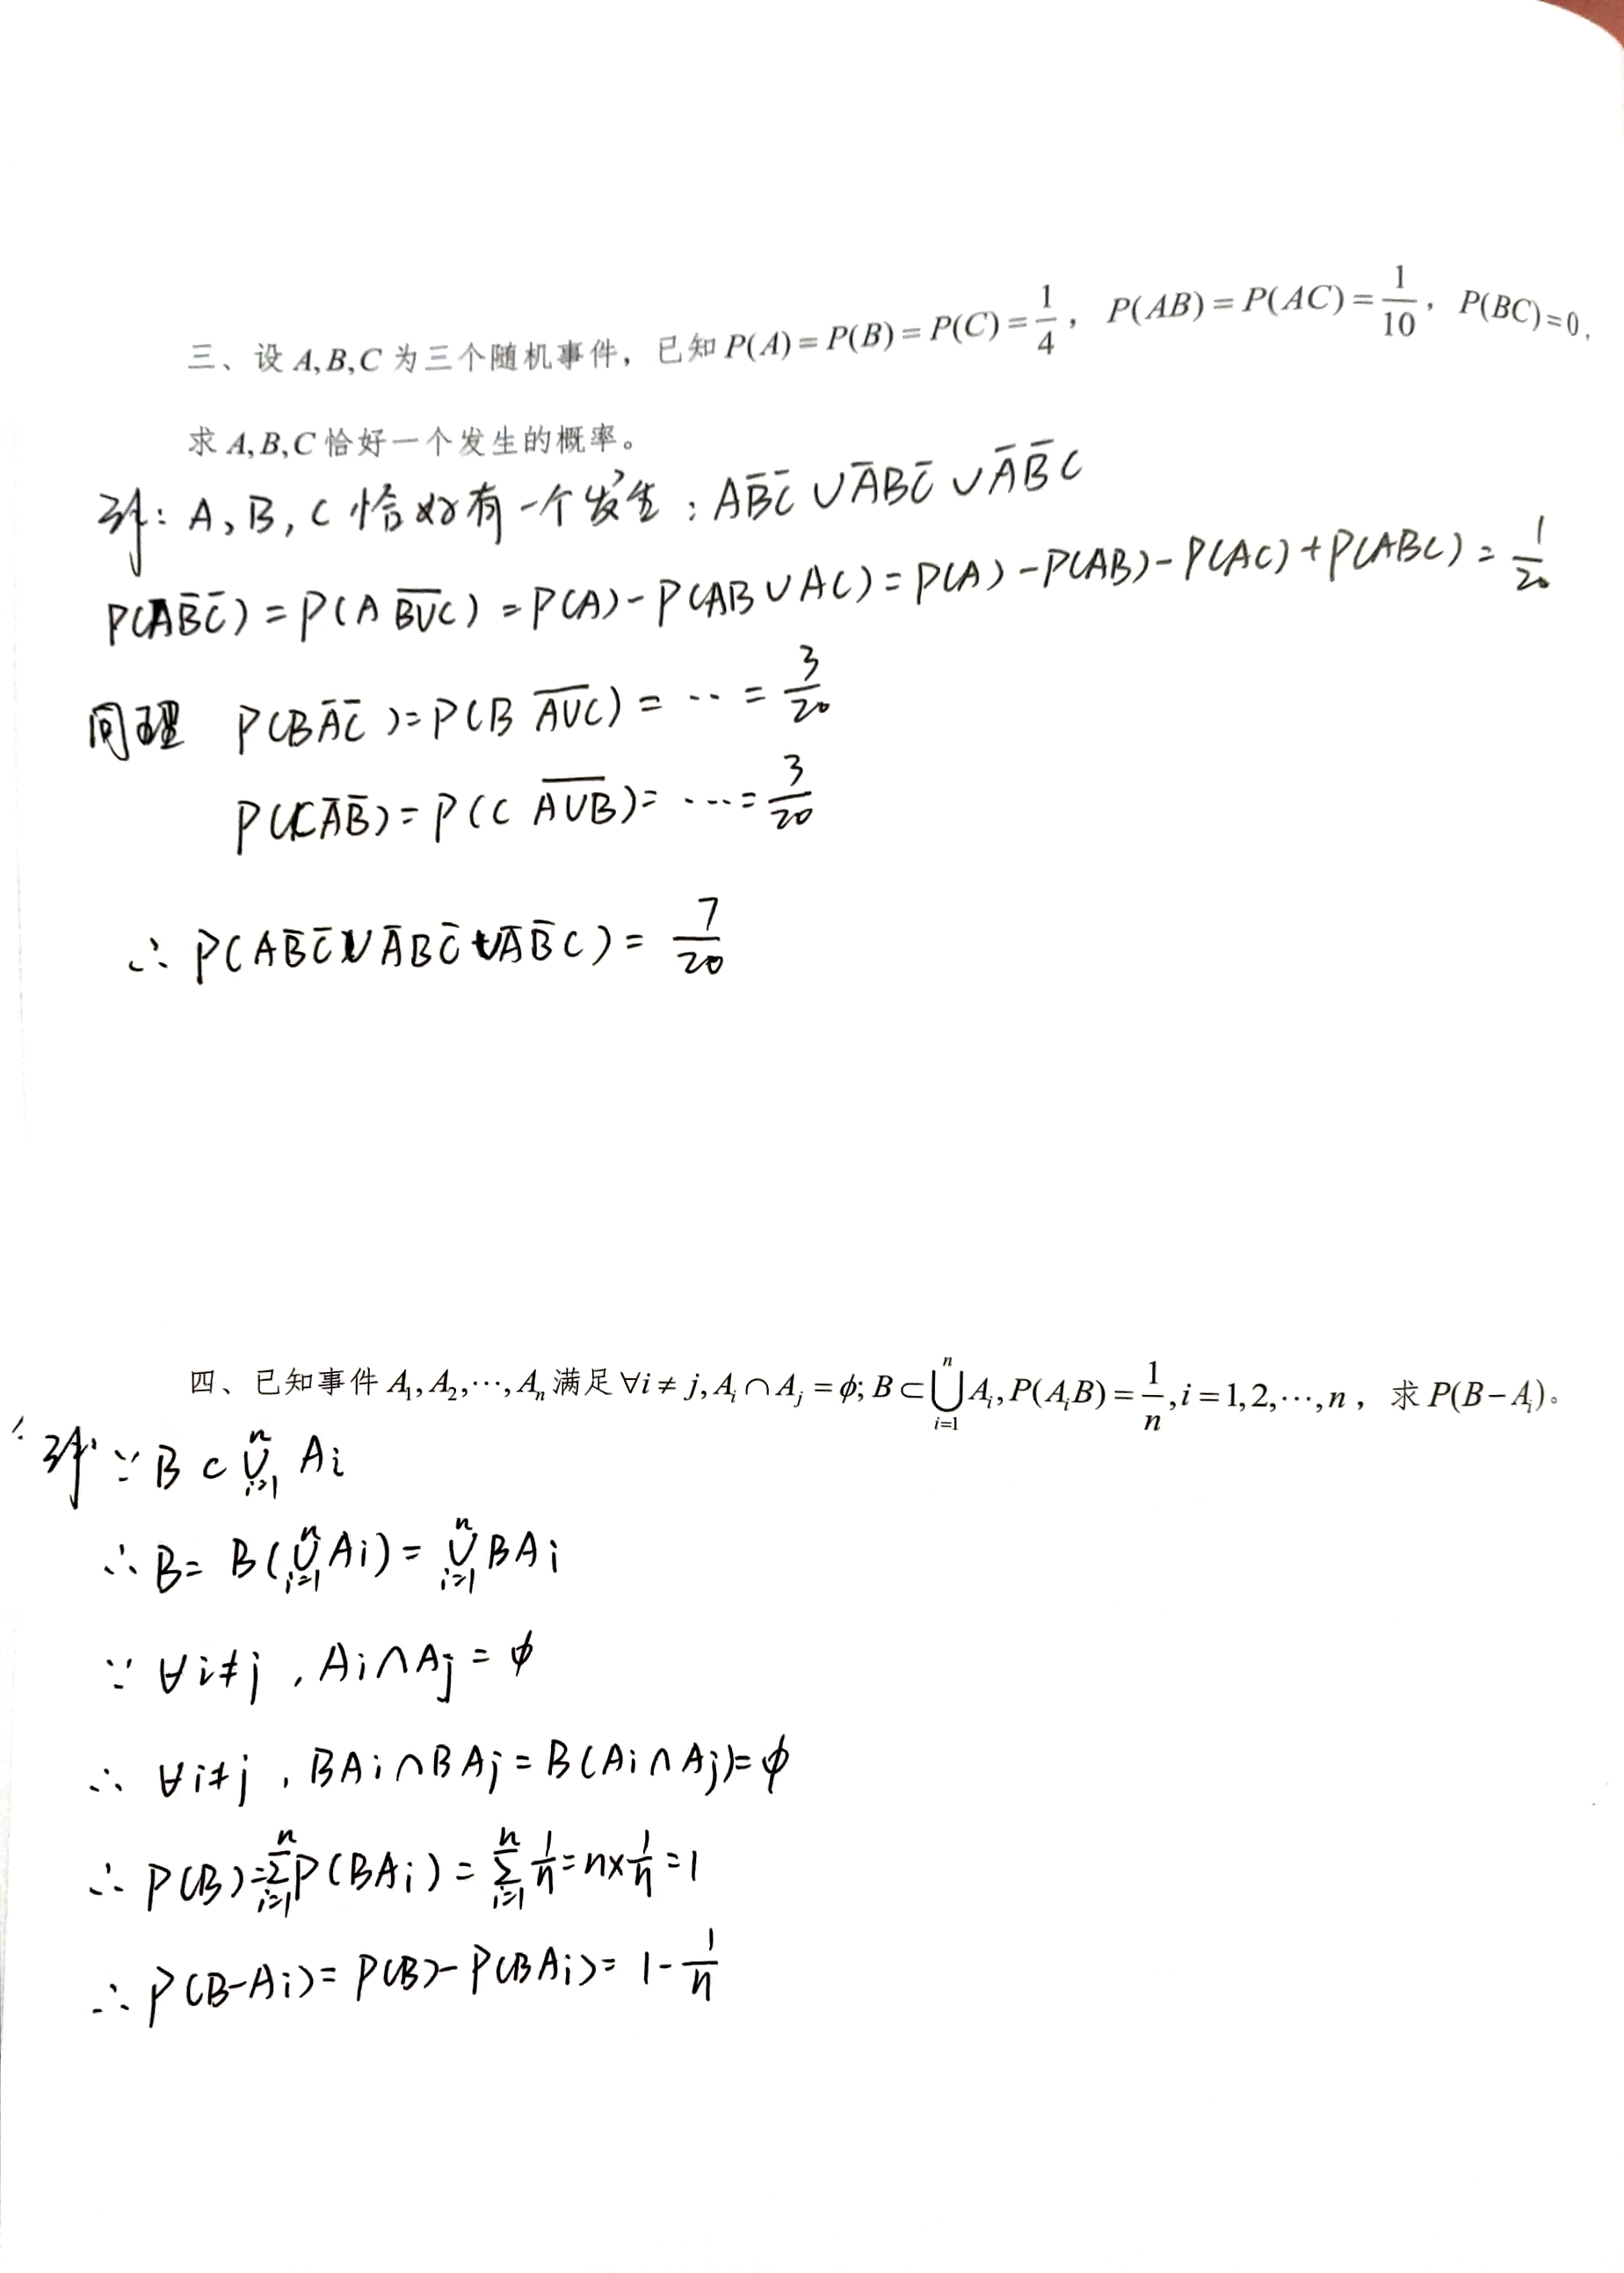 三、设 A,B,C 为三个随机事件，已知 P(A)=P(B)=P(C)=1/4， P(AB)=P(AC)=1/10，P(BC)=0,
求 A,B,C 恰好一个发生的概率。
解: A, B, C 恰好有一个发生 : AB̄C̄ ∪ ĀBC̄ ∪ ĀB̄C
P(AB̄C̄) = P(A \overline{B∪C}) = P(A) - P(AB∪AC) = P(A) - P(AB) - P(AC) + P(ABC) = 1/20
同理 P(BĀC̄) = P(B \overline{A∪C}) = ·· = 3/20
P(CĀB̄) = P(C \overline{A∪B}) = ··· = 3/20
∴ P(AB̄C̄∪ĀBC̄∪ĀB̄C) = 7/20
四、已知事件 A₁, A₂, ⋯, Aₙ 满足 ∀i ≠ j, A_i ∩ A_j = ϕ; B ⊂ ⋃_{i=1}^{n} A_i, P(A_iB) = 1/n, i = 1,2,⋯,n，求 P(B − A_i)。
解: ∵ B ⊂ ⋃_{i=1}^{n} Ai
∴ B = B(⋃_{i=1}^{n} Ai) = ⋃_{i=1}^{n} BAi
∵ ∀i≠j , Ai∩Aj = ϕ
∴ ∀i≠j , BAi∩BAj = B(Ai∩Aj) = ϕ
∴ P(B) = ∑_{i=1}^{n} P(BAi) = ∑_{i=1}^{n} 1/n = n×1/n = 1
∴ P(B-Ai) = P(B) - P(BAi) = 1 - 1/n